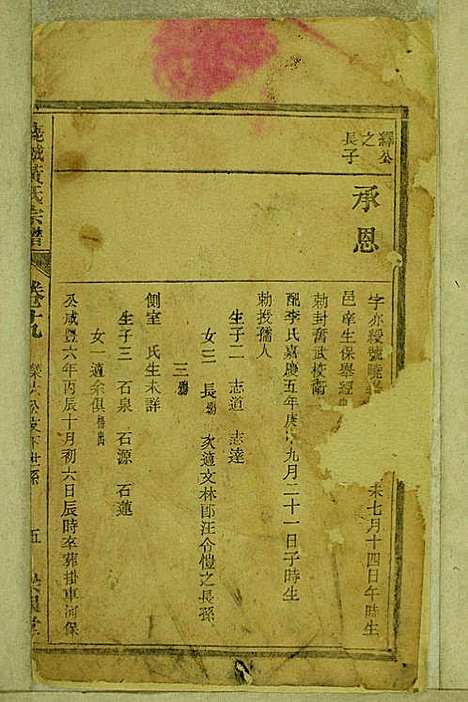 繹公
之
長子
承恩
字亦綬號曉
未七月十四日午時生
邑庠生保舉經
勅封奮武校衛
配李氏嘉慶五年庚 九月二十一日子時生
勅授孺人
生子二 志道 志達
女三 長殤 次適文林郎汪令愷之長孫
三殤
側室 氏生未詳
生子三 石泉 石源 石蓮
女一適余俱
公咸豐六年丙辰十月初六日辰時卒葬掛車河保
黃氏宗譜
卷十九
五